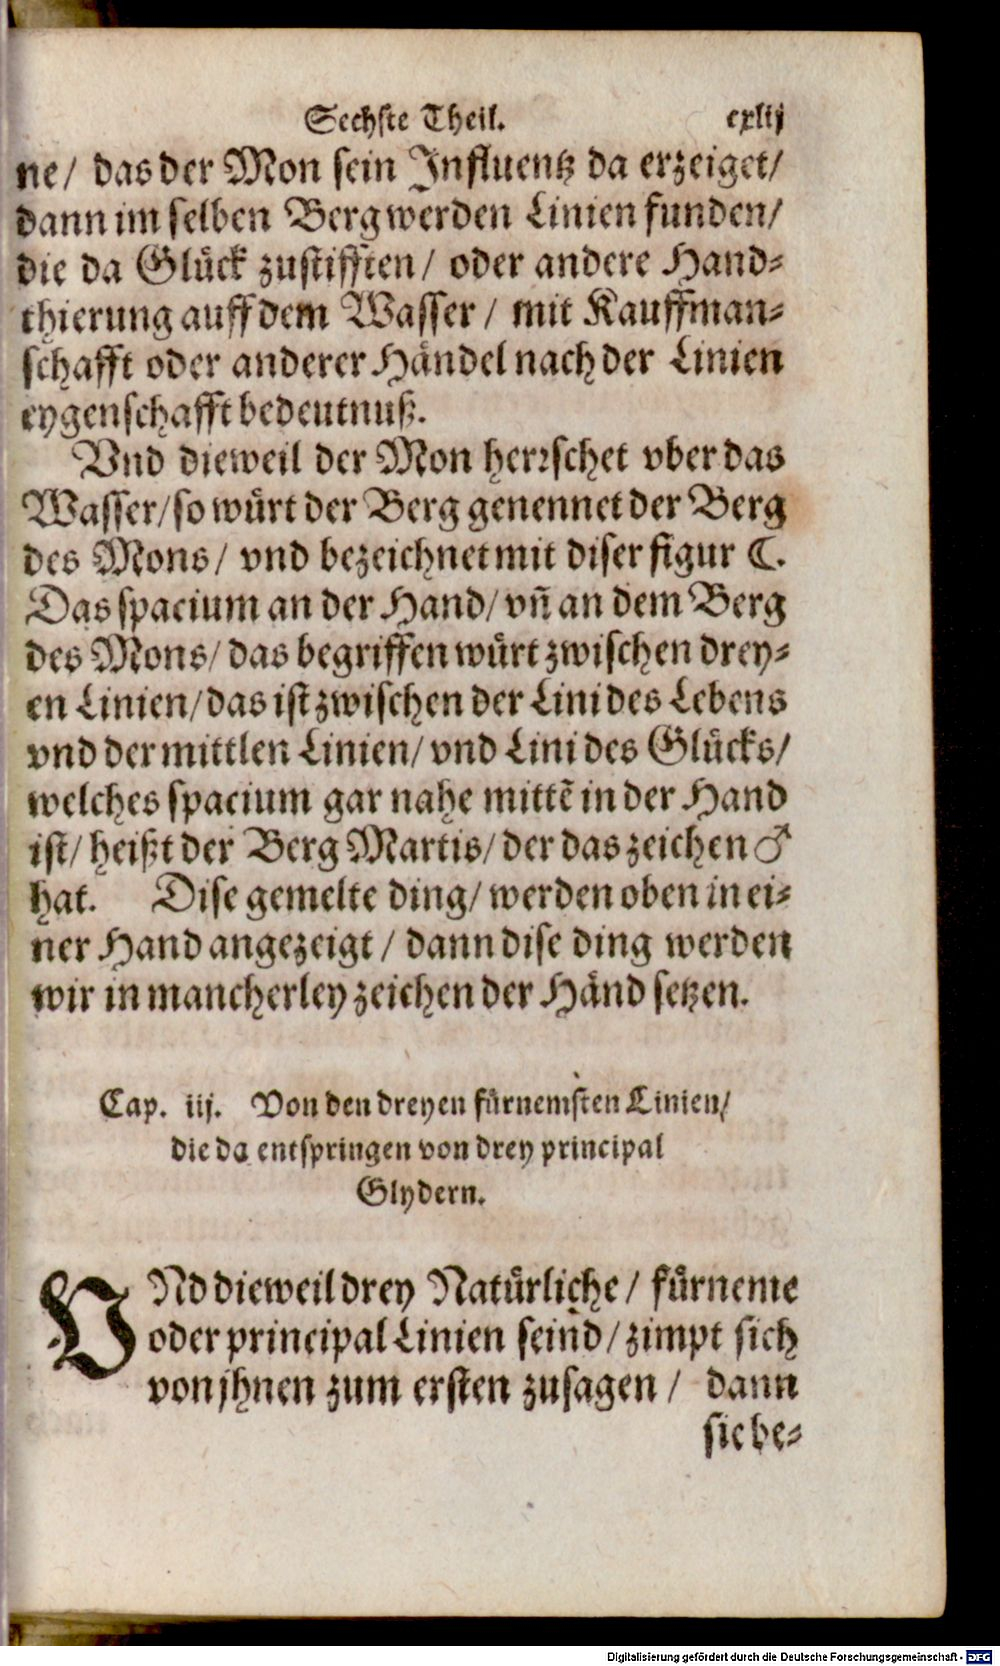 Sechste Theil. cxlij
ne/ das der Mon sein Influentz da erzeiget/
dann im selben Berg werden Linien funden/
die da Glück zustifften/ oder andere Hand-
thierung auff dem Wasser/ mit Kauffman-
schafft oder anderer Händel nach der Linien
eygenschafft bedeutnuß.
Vnd dieweil der Mon herrschet vber das
Wasser/ so würt der Berg genennet der Berg
des Mons/ vnd bezeichnet mit diser figur ☾.
Das spacium an der Hand/ vñ an dem Berg
des Mons/ das begriffen würt zwischen drey-
en Linien/ das ist zwischen der Lini des Lebens
vnd der mittlen Linien/ vnd Lini des Glücks/
welches spacium gar nahe mittẽ in der Hand
ist/ heißt der Berg Martis/ der das zeichen ♂
hat. Dise gemelte ding/ werden oben in ei-
ner Hand angezeigt/ dann dise ding werden
wir in mancherley zeichen der Händ setzen.
Cap. iij. Von den dreyen fürnemsten Linien/
die da entspringen von drey principal
Glydern.
VNd dieweil drey Natürliche/ fürneme
oder principal Linien seind/ zimpt sich
von jhnen zum ersten zusagen/ dann
sie be-
Digitalisierung gefördert durch die Deutsche Forschungsgemeinschaft - DFG